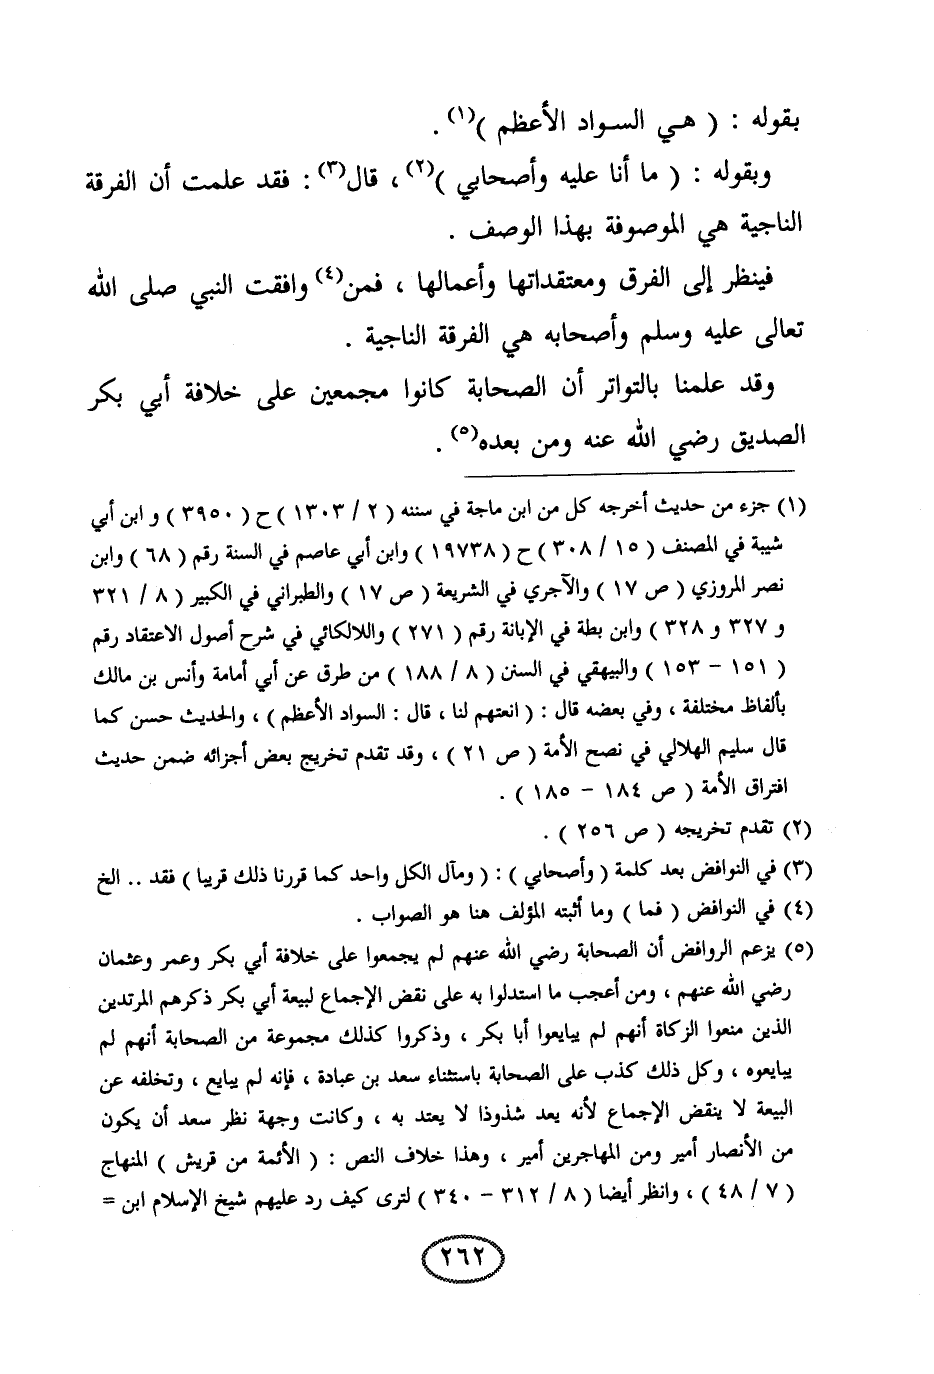 بقوله : ( هـي السـواد الأعظم )(١) .
وبقوله : ( ما أنا عليه وأصحابي )(٢) ، قال(٣) : فقد علمت أن الفرقة
الناجية هي الموصوفة بهذا الوصف .
فينظر إلى الفرق ومعتقداتها وأعمالها ، فمن(٤) وافقت النبي صلى الله
تعالى عليه وسلم وأصحابه هي الفرقة الناجية .
وقد علمنا بالتواتر أن الصحابة كانوا مجمعين على خلافة أبي بكر
الصديق رضي الله عنه ومن بعده(٥) .
(١) جزء من حديث أخرجه كل من ابن ماجة في سننه ( ٢ / ١٣٠٣ ) ح ( ٣٩٥٠ ) و ابن أبي
شيبة في المصنف ( ١٥ / ٣٠٨ ) ح ( ١٩٧٣٨ ) وابن أبي عاصم في السنة رقم ( ٦٨ ) وابن
نصر المروزي ( ص ١٧ ) والآجري في الشريعة ( ص ١٧ ) والطبراني في الكبير ( ٨ / ٣٢١
و ٣٢٧ و ٣٢٨ ) وابن بطة في الإبانة رقم ( ٢٧١ ) واللالكائي في شرح أصول الاعتقاد رقم
( ١٥١ - ١٥٣ ) والبيهقي في السنن ( ٨ / ١٨٨ ) من طرق عن أبي أمامة وأنس بن مالك
بألفاظ مختلفة ، وفي بعضه قال : ( انعتهم لنا ، قال : السواد الأعظم ) ، والحديث حسن كما
قال سليم الهلالي في نصح الأمة ( ص ٢١ ) ، وقد تقدم تخريج بعض أجزائه ضمن حديث
افتراق الأمة ( ص ١٨٤ - ١٨٥ ) .
(٢) تقدم تخريجه ( ص ٢٥٦ ) .
(٣) في النوافض بعد كلمة ( وأصحابي ) : ( ومآل الكل واحد كما قررنا ذلك قريبا ) فقد .. الخ
(٤) في النوافض ( فما ) وما أثبته المؤلف هنا هو الصواب .
(٥) يزعم الروافض أن الصحابة رضي الله عنهم لم يجمعوا على خلافة أبي بكر وعمر وعثمان
رضي الله عنهم ، ومن أعجب ما استدلوا به على نقض الإجماع لبيعة أبي بكر ذكرهم المرتدين
الذين منعوا الزكاة أنهم لم يبايعوا أبا بكر ، وذكروا كذلك مجموعة من الصحابة أنهم لم
يبايعوه ، وكل ذلك كذب على الصحابة باستثناء سعد بن عبادة ، فإنه لم يبايع ، وتخلفه عن
البيعة لا ينقض الإجماع لأنه يعد شذوذا لا يعتد به ، وكانت وجهة نظر سعد أن يكون
من الأنصار أمير ومن المهاجرين أمير ، وهذا خلاف النص : ( الأئمة من قريش ) المنهاج
( ٧ / ٤٨ ) ، وانظر أيضا ( ٨ / ٣١٢ - ٣٤٠ ) لترى كيف رد عليهم شيخ الإسلام ابن =
٢٦٢